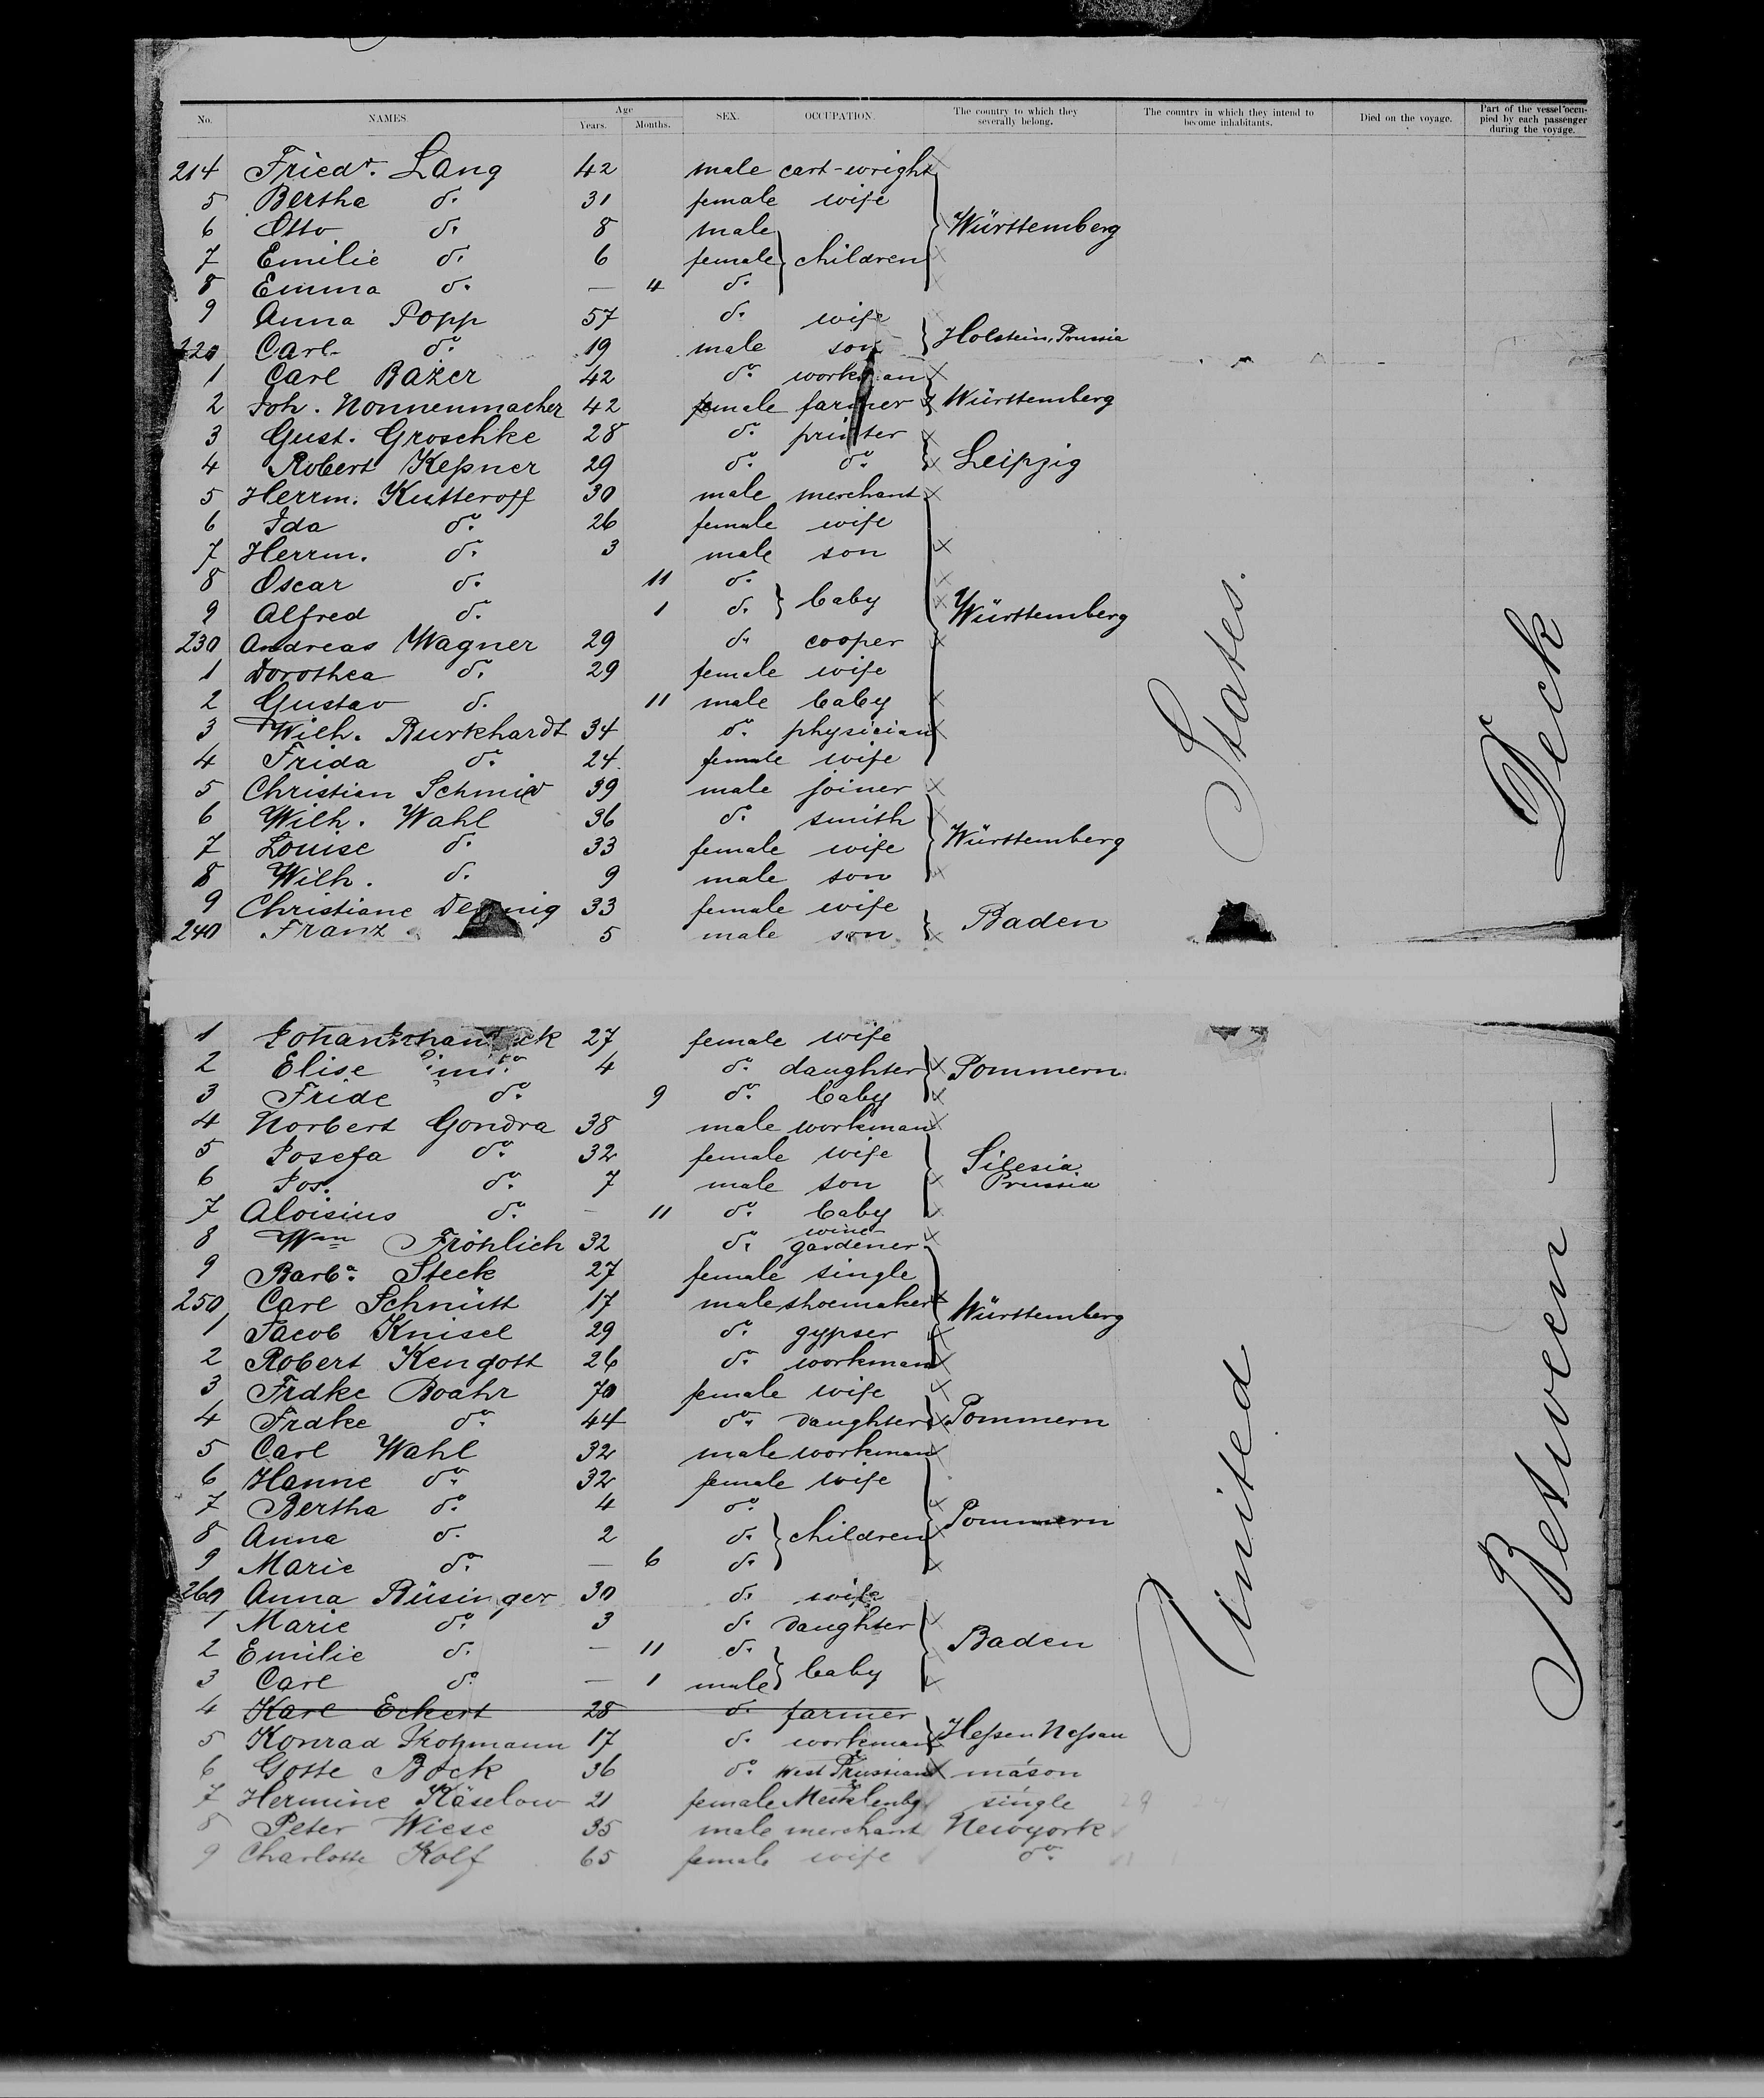 No. NAMES Age Years. Months. SEX. OCCUPATION. The country to which they severally belong. The country in which they intend to become inhabitants. Died on the voyage. Part of the vessel occupied by each passenger during the voyage.
214 Friedr. Lang 42 male cart-wright
5 Bertha do. 31 female wife
6 Otto do. 8 male Württemberg
7 Emilie do. 6 female children
8 Emma do. — 4 do.
9 Anna Popp 57 do. wife
220 Carl do. 19 male son Holstein, Prussia
1 Carl Bazer 42 do. workman
2 Joh. Nonnenmacher 42 male farmer Württemberg
3 Gust. Groschke 28 do. printer
4 Robert Keßner 29 do. do. Leipzig
5 Herrm. Kutteroff 30 male merchant
6 Ida do. 26 female wife
7 Herrm. do. 3 male son
8 Oscar do. 11 do.
9 Alfred do. 1 do. baby Württemberg
230 Andreas Wagner 29 do. cooper
1 Dorothea do. 29 female wife
2 Gustav do. 11 male baby
3 Wilh. Burkhardt 34 do. physician
4 Frida do. 24 female wife
5 Christian Schmid 39 male joiner
6 Wilh. Wahl 36 do. smith
7 Louise do. 33 female wife Württemberg
8 Wilh. do. 9 male son
9 Christiane 33 female wife
240 Franz 5 male son Baden
1 27 female wife
2 Elise 4 do. daughter Pommern
3 Fride do. 9 do. baby
4 Norbert Gondra 38 male workman
5 Josefa do. 32 female wife Silesia
6 Jos. do. 7 male son Prussia
7 Aloisius do. — 11 do. baby
8 Wm Fröhlich 32 do. wine-gardener
9 Barba. Steck 27 female single
250 Carl Schnütt 17 male shoemaker Württemberg
1 Jacob Knisel 29 do. gypser
2 Robert Kengott 26 do. workman
3 Frdke Boahr 70 female wife
4 Frdke do. 44 do. daughter Pommern
5 Carl Wahl 32 male workman
6 Hanne do. 32 female wife
7 Bertha do. 4 do. Pommern
8 Anna do. 2 do. children
9 Marie do. — 6 do.
260 Anna Büsinger 30 do. wife
1 Marie do. 3 do. daughter
2 Emilie do. — 11 do. Baden
3 Carl do. — 1 male baby
4 Karl Eckert 28 do. farmer
5 Konrad 17 do. workman Heßen Naßau
6 Gotte Bock 36 do. West Prussian mason
7 Hermine Käselow 21 female Mecklenbg single
8 Peter Wiese 35 male merchant Newyork
9 Charlotte Kolf 65 female wife do.
United States.
Between — Deck